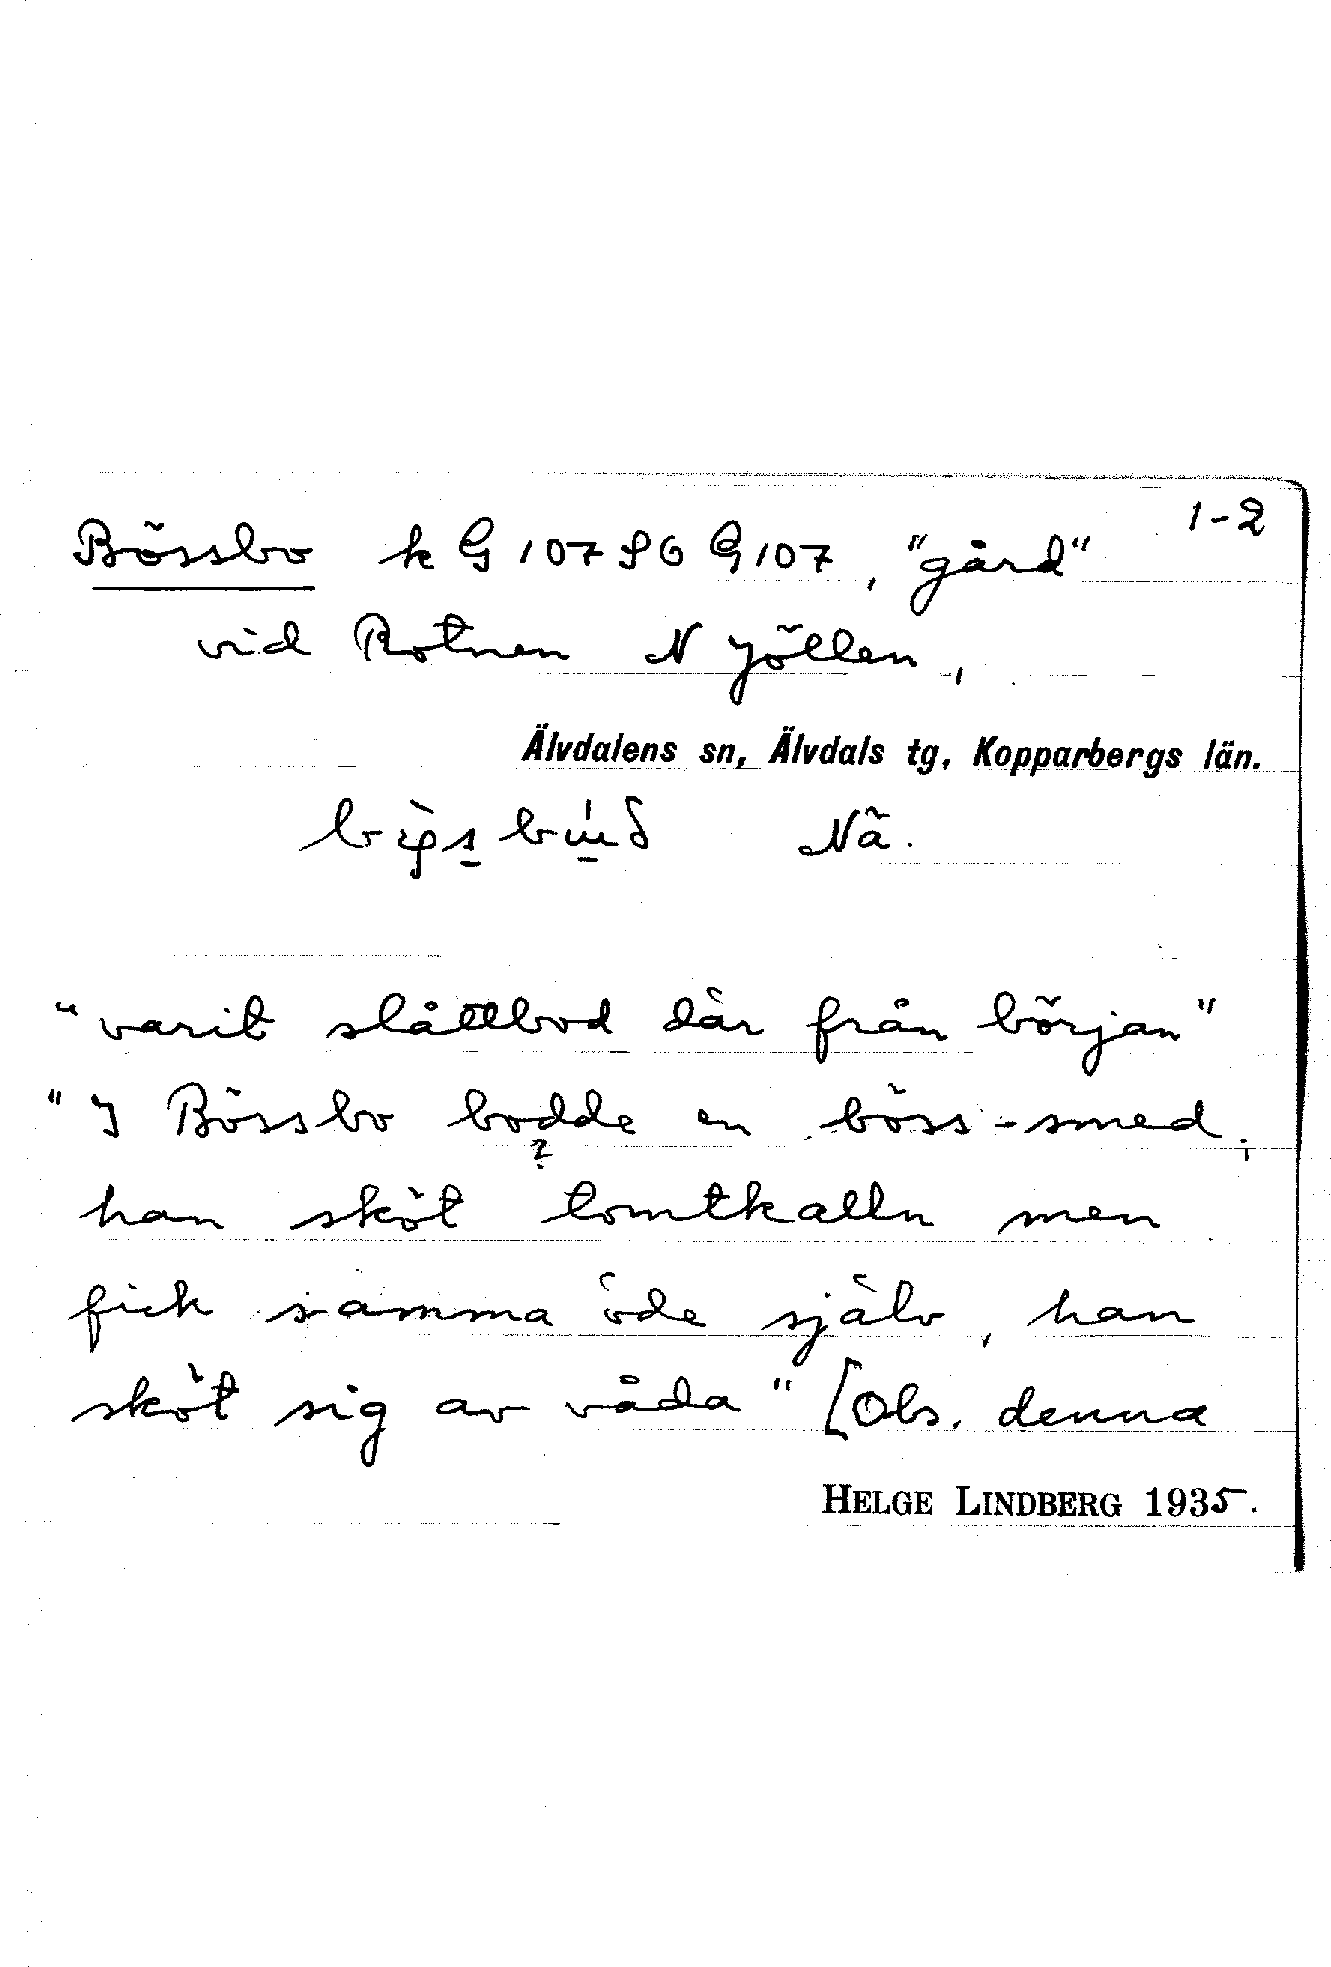 1-2
Bössbo k G 107 SO G 107, "gård"
vid Rotnen N Jöllen,
Älvdalens sn, Älvdals tg, Kopparbergs län.
Nä.
"varit slåttbod där från början"
"I Bössbo bodde en böss-smed,
?
han sköt tomtkalln men
fick samma öde själv, han
sköt sig av våda" [Obs. denna
HELGE LINDBERG 1935.